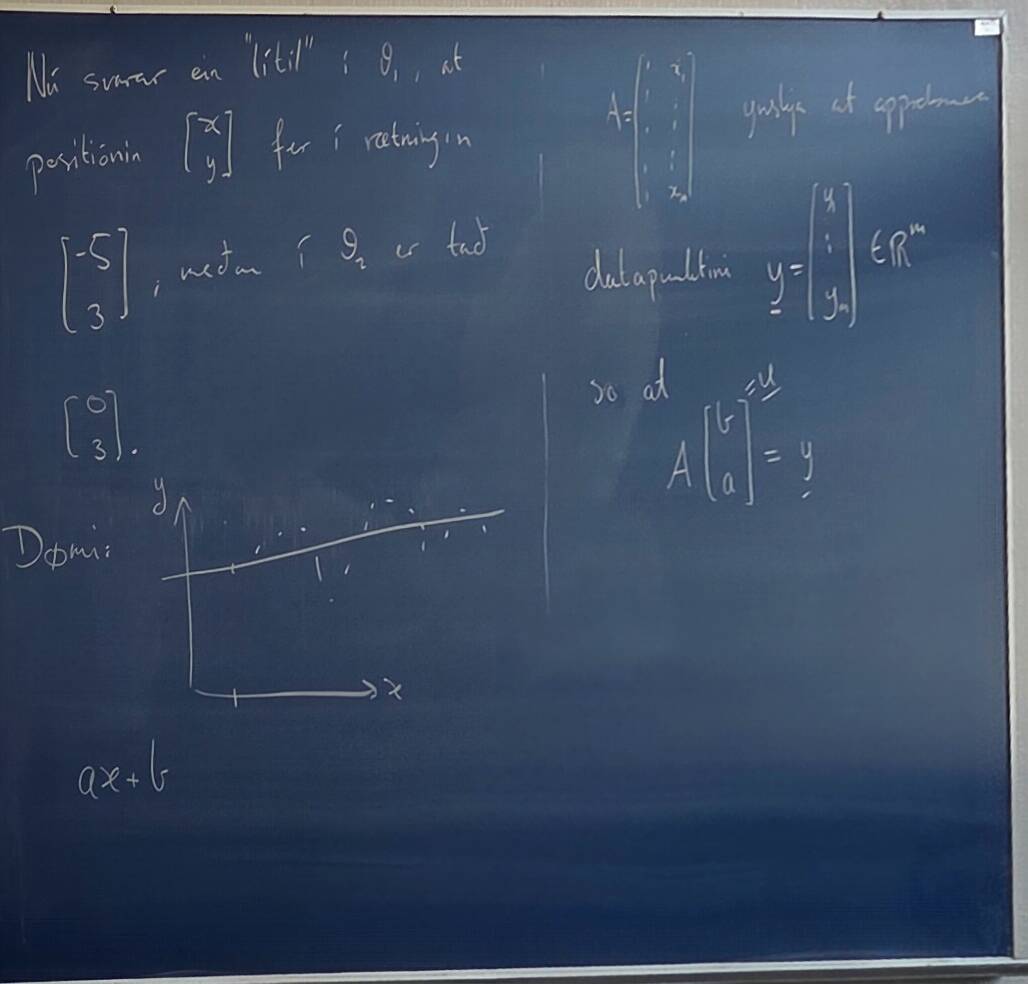 Nú svarar ein "lítil" í θ₁, at
positiónin [x y] fer í rætningin
[-5 3], meðan í θ₂ er tað
[0 3].
Dømi:
y
x
ax + b
A = [1 x₁ ⋮ ⋮ 1 xₘ] ynskja at
datapunktini y = [y₁ ⋮ yₘ] ∈ ℝᵐ
so at
A [b a] = y
= u